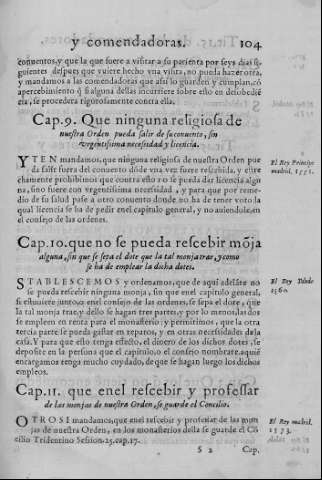 y comendadoras. 104
conuentos, y que la que fuere a visitar a su parienta por seys dias si-
guientes despues que vuiere hecho vna visita, no pueda hazer otra,
y mandamos a las comendadoras que assi lo guarden y cumplan, có
apercebimiento q̃ si alguna dellas incurriere sobre ello en desobediē
cia, se procedera rigurosamente contra ella.
Cap.9. Que ninguna religiosa de
nuestra Orden pueda salir de su conuento, sin
vrgentissima necesidad y licencia.
YTEN mandamos, que ninguna religiosa de nuestra Orden pue
da salir fuera del conuento dóde vna vez fuere rescebida. y estre
chamente prohibimos que contra esto no se pueda dar licencia algu
na, sino fuere con vrgentissima necesidad, y para que por reme-
dio de su salud pase a otro conuento donde no ha de tener voto la
qual licencia se ha de pedir en el capitulo general, y no auiendole, en
el consejo de las ordenes.
El Rey Principe
madrid. 1551.
Cap.10. que no se pueda rescebir mõja
alguna, sin que se sepa el dote que la tal monja trae, y como
se ha de emplear la dicha dotes.
STABLESCEMOS y ordenamos, que de aqui adelāte no
se pueda rescebir ninguna monja, sin que en el capitulo general,
si estuuiere junto, o en el consejo de las ordenes, se sepa el dote, que
la tal monja trae, y dello se hagan tres partes, y por lo menos, las dos
se empleen en renta para el monasterio y permitimos, que la otra
tercia parte se pueda gastar en reparos, y en otras necessidades de la
casa. Y para que esto tenga effecto, el dinero de los dichos dotes, se
deposite en la persona que el capitulo, o el consejo nombrare. aquié
encargamos tenga mucho cuydado, de que se hagan luego los dichos
empleos.
El Rey Toledo
1560.
Cap.11. que en el rescebir y professar
de las monjas de nuestra Orden, se guarde el Concilio.
OTROSI mandamos, que en el rescebir y professar de las mon
jas de nuestra Orden, en los monasterios della se guarde el Cõ
cilio Tridentino Session.25.cap.17.
El Rey madrid.
1573.
S 2 Cap.